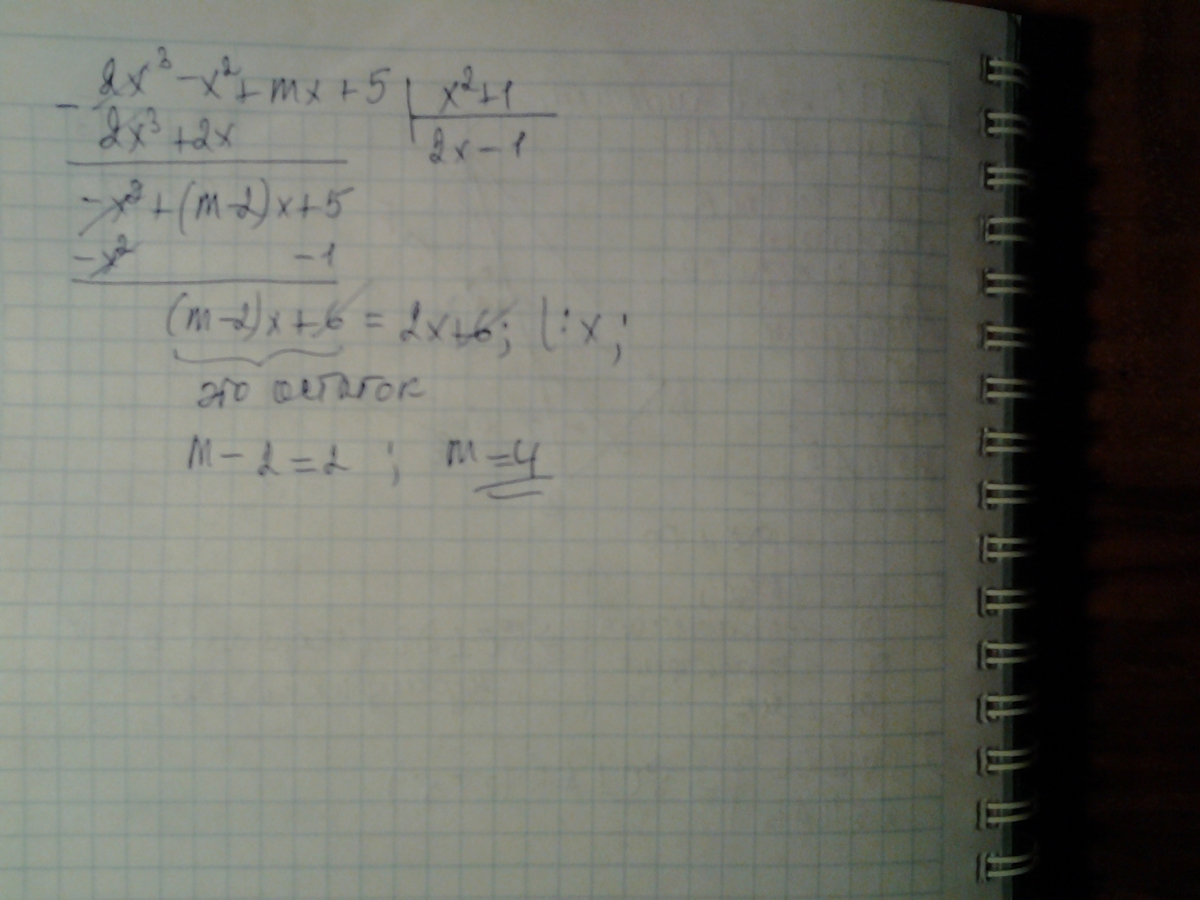 2x³ - x² + mx + 5 | x² + 1
- 2x³ + 2x | 2x - 1
-x² + (m-2)x + 5
-x² -1
(m-2)x + 6 = 2x + 6; |:x;
это остаток
m - 2 = 2 ; m = 4